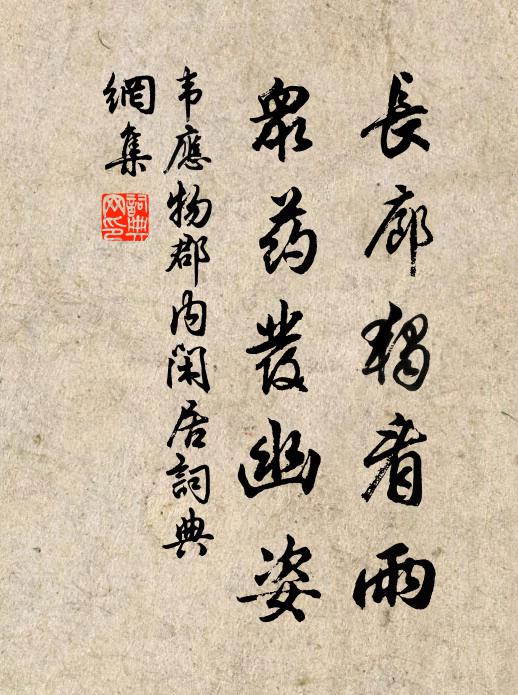 長廊獨看雨
眾药發幽姿
韦應物郡内闲居詞典
網集
詞典
网印